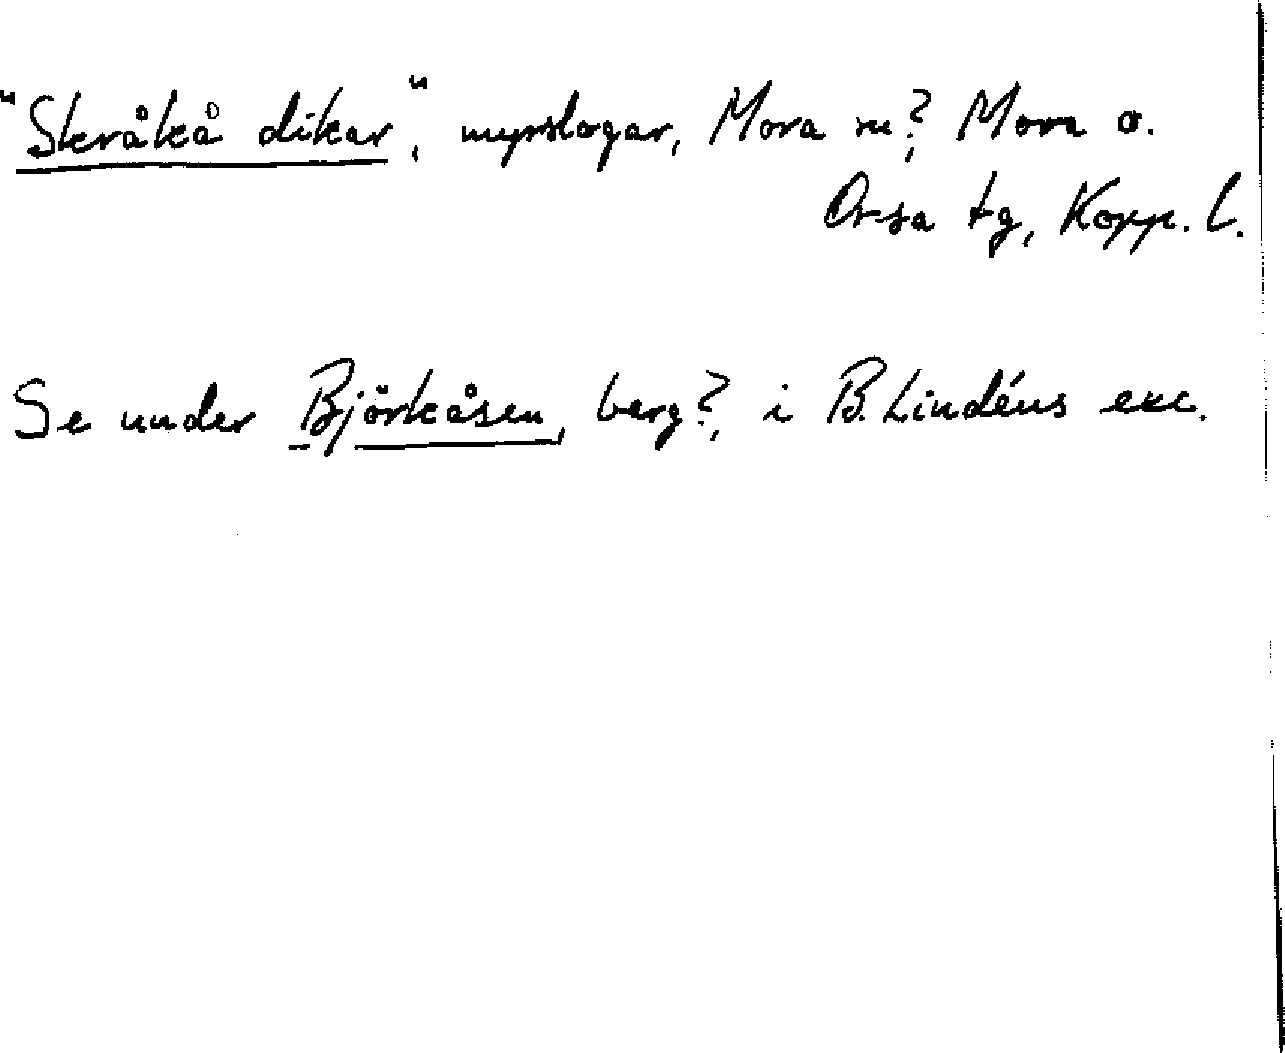 "Skråkå dikar", myrslogar, Mora sn?, Mora o.
Orsa tg, Kopp. l.
Se under Björkåsen, berg?, i B. Lindéns exc.